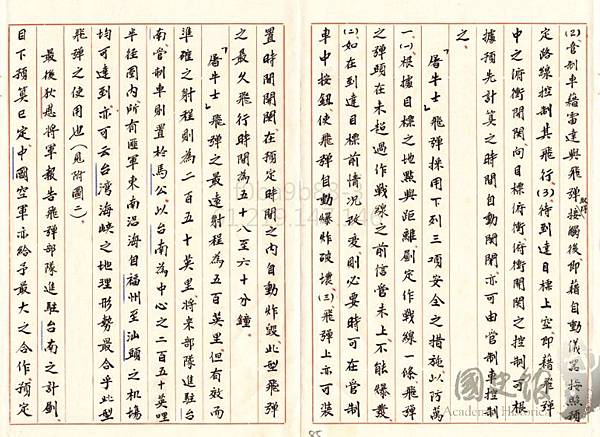 (2)管制車藉雷達與飛彈取得接觸後即藉自動儀器按照預
定路線控制其飛行(3)待到達目標上空即藉飛彈
中之俯衝開關向目標俯衝俯衝開關之控制可根
據預先計算之時間自動開關亦可由管制車控制
之
「屠牛士」飛彈採用下列三項安全之措施以防萬
一(一)根據目標之地點與距離劃定作戰線一條飛彈
之彈頭在未超過作戰線之前信管未上不能爆發
(二)如在到達目標前情況改變則必要時可在管制
車中按鈕使飛彈自動爆炸破壞(三)飛彈上亦可裝
置時間開關在預定時間之內自動炸毀此型飛彈
之最久飛行時間為五十八至六十分鐘
「屠牛士」飛彈之最遠射程為五百英里但有效而
準確之射程則為二百五十英里將來部隊進駐台
南管制車則置於馬公以台南為中心之二百五十英哩
半徑圈內所有匪軍東南沿海自福州至汕頭之機場
均可達到亦可云台灣海峽之地理形勢最合乎此型
飛彈之使用也(見附圖二)
最後狄恩將軍報告飛彈部隊進駐台南之計劃
目下預算已定中國空軍亦給予最大之合作預定
85
國史館
Academia Historica